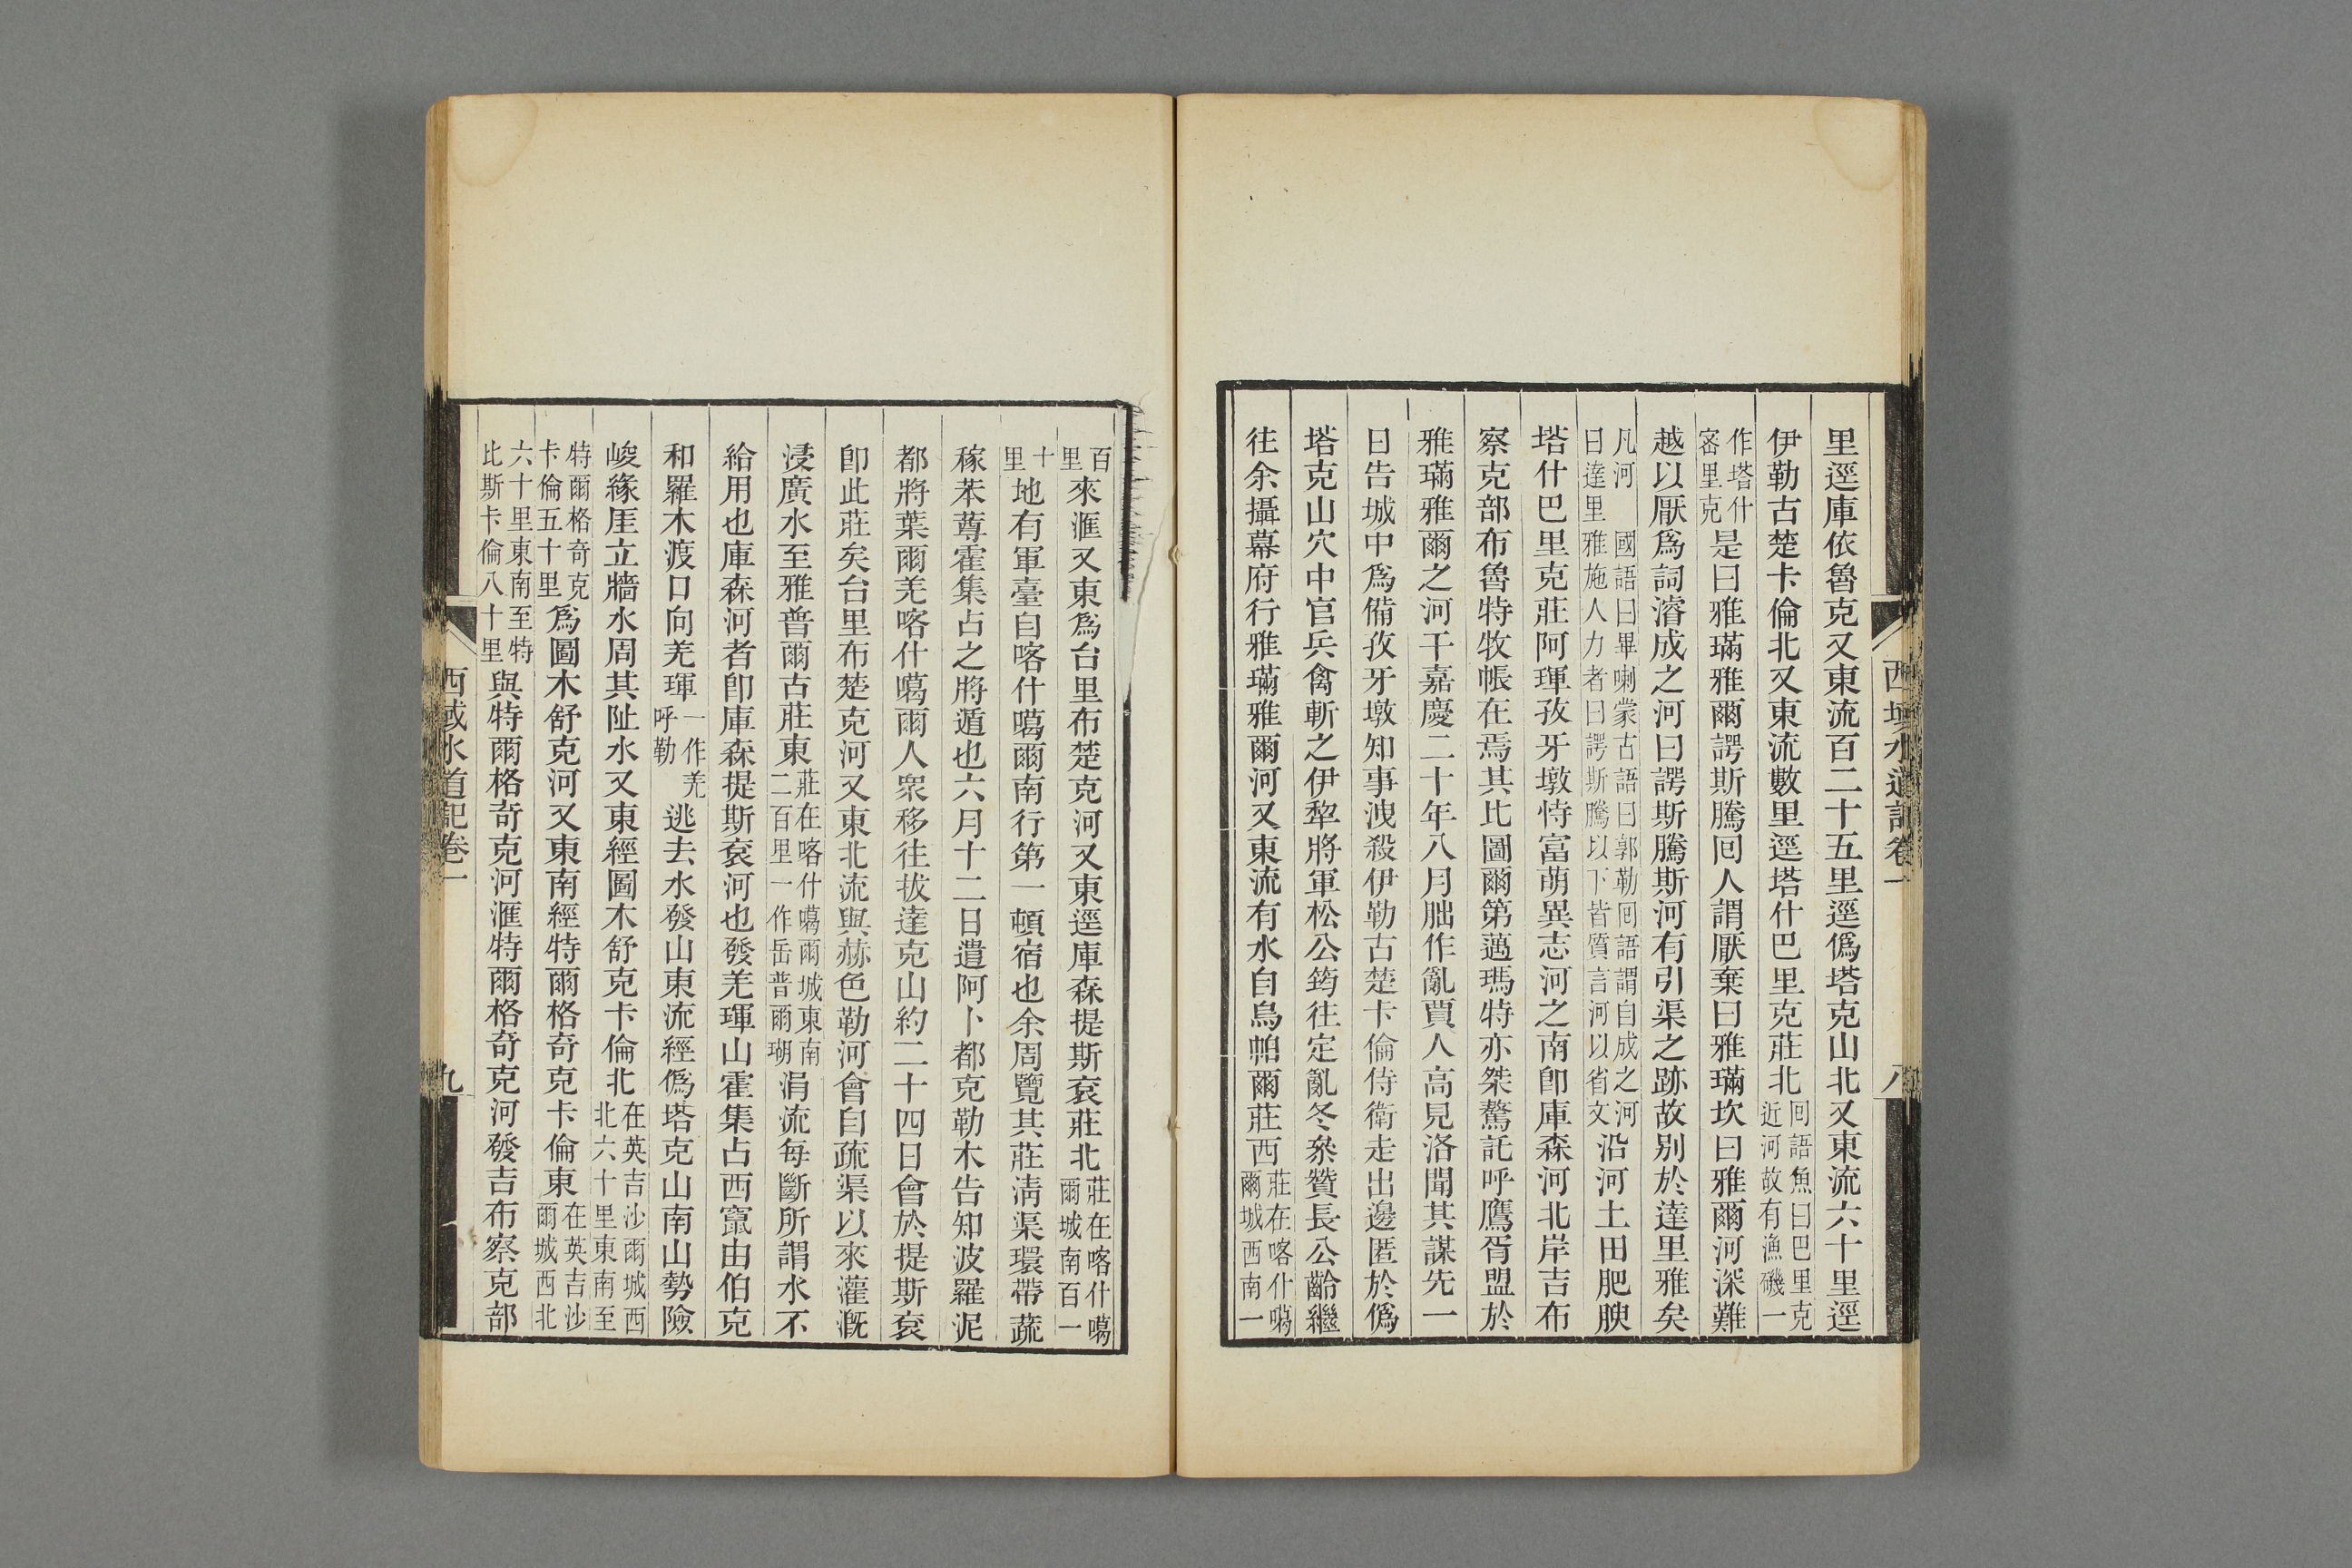 里逕庫依魯克又東流百二十五里逕僞塔克山北又東流六十里逕
伊勒古楚卡倫北又東流數里逕塔什巴里克莊北回語魚曰巴里克近河故有漁磯一
作塔什密里克是曰雅璊雅爾諤斯騰回人謂厭棄曰雅璊坎曰雅爾河深難
越以厭爲詞濬成之河曰諤斯騰斯河有引渠之跡故別於達里雅矣
凡河國語曰畢喇蒙古語曰郭勒回語謂自成之河曰達里雅施人力者曰諤斯騰以下皆質言河以省文沿河土田肥腴
塔什巴里克莊阿琿孜牙墩恃富萌異志河之南卽庫森河北岸吉布
察克部布魯特牧帳在焉其比圖爾第邁瑪特亦桀驁託呼鷹胥盟於
雅璊雅爾之河干嘉慶二十年八月朏作亂賈人高見洛聞其謀先一
日告城中爲備孜牙墩知事洩殺伊勒古楚卡倫侍衛走出邊匿於僞
塔克山穴中官兵禽斬之伊犂將軍松公筠往定亂冬叅贊長公齡繼
往余攝幕府行雅璊雅爾河又東流有水自烏帕爾莊西莊在喀什噶爾城西南一
西域水道記卷一
八
百里來滙又東爲台里布楚克河又東逕庫森提斯袞莊北莊在喀什噶爾城南百一
十里地有軍臺自喀什噶爾南行第一頓宿也余周覽其莊淸渠環帶蔬
稼苯䔿霍集占之將遁也六月十二日遣阿卜都克勒木告知波羅泥
都將葉爾羌喀什噶爾人衆移往拔達克山約二十四日會於提斯袞
卽此莊矣台里布楚克河又東北流與赫色勒河會自疏渠以來灌漑
浸廣水至雅普爾古莊東莊在喀什噶爾城東南二百里一作岳普爾瑚涓流每斷所謂水不
給用也庫森河者卽庫森提斯袞河也發羌琿山霍集占西竄由伯克
和羅木渡口向羌琿一作羌呼勒逃去水發山東流經僞塔克山南山勢險
峻緣厓立牆水周其阯水又東經圖木舒克卡倫北在英吉沙爾城西北六十里東南至
特爾格奇克卡倫五十里爲圖木舒克河又東南經特爾格奇克卡倫東在英吉沙爾城西北
六十里東南至特比斯卡倫八十里與特爾格奇克河滙特爾格奇克河發吉布察克部
西域水道記卷一
九